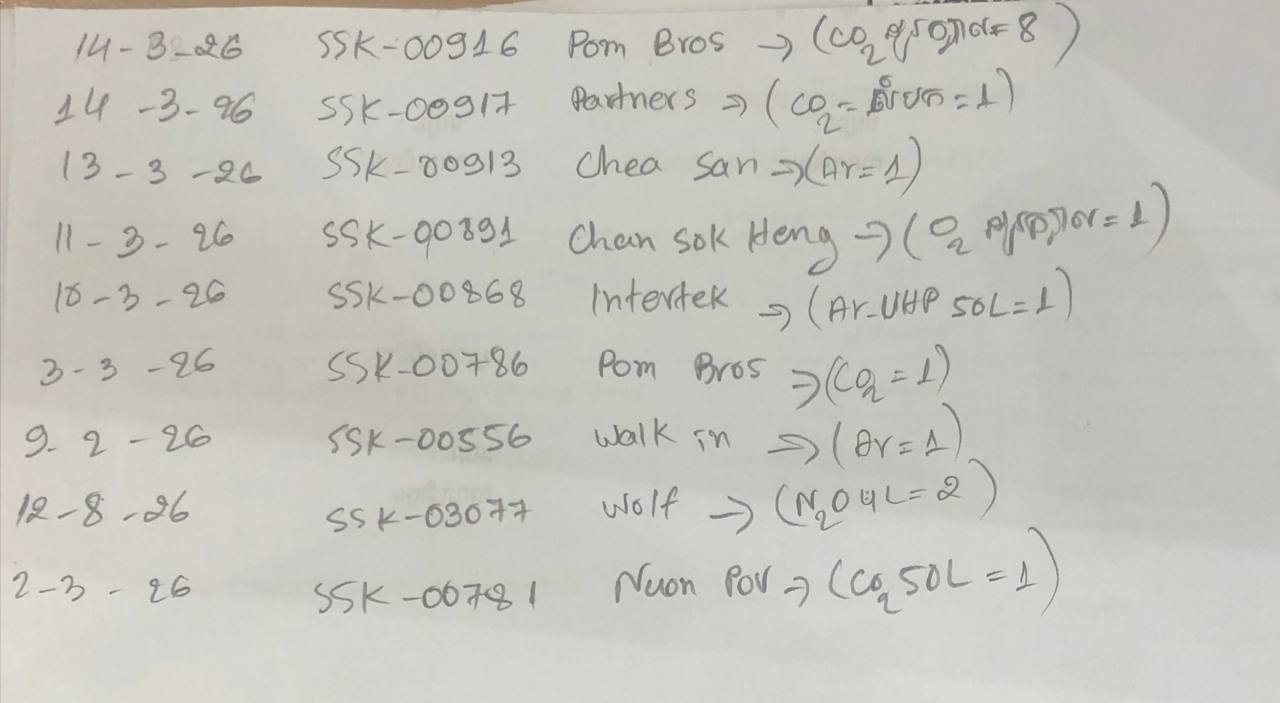 14-3-26 SSK-00916 Pom Bros → (CO₂ = 8)
14-3-26 SSK-00917 Partners ⇒ (CO₂- = 1)
13-3-26 SSK-00913 Chea San ⇒ (Ar=1)
11-3-26 SSK-00891 Chan Sok Heng ⇒ (O₂ = 1)
10-3-26 SSK-00868 Intertek ⇒ (Ar-UHP 50L=1)
3-3-26 SSK-00786 Pom Bros ⇒ (CO₂ = 1)
9-2-26 SSK-00556 Walk in ⇒ (Ar=1)
12-8-26 SSK-03077 Wolf → (N₂O 4L=2)
2-3-26 SSK-00781 Nuon Pov ⇒ (CO₂ 50L = 1)